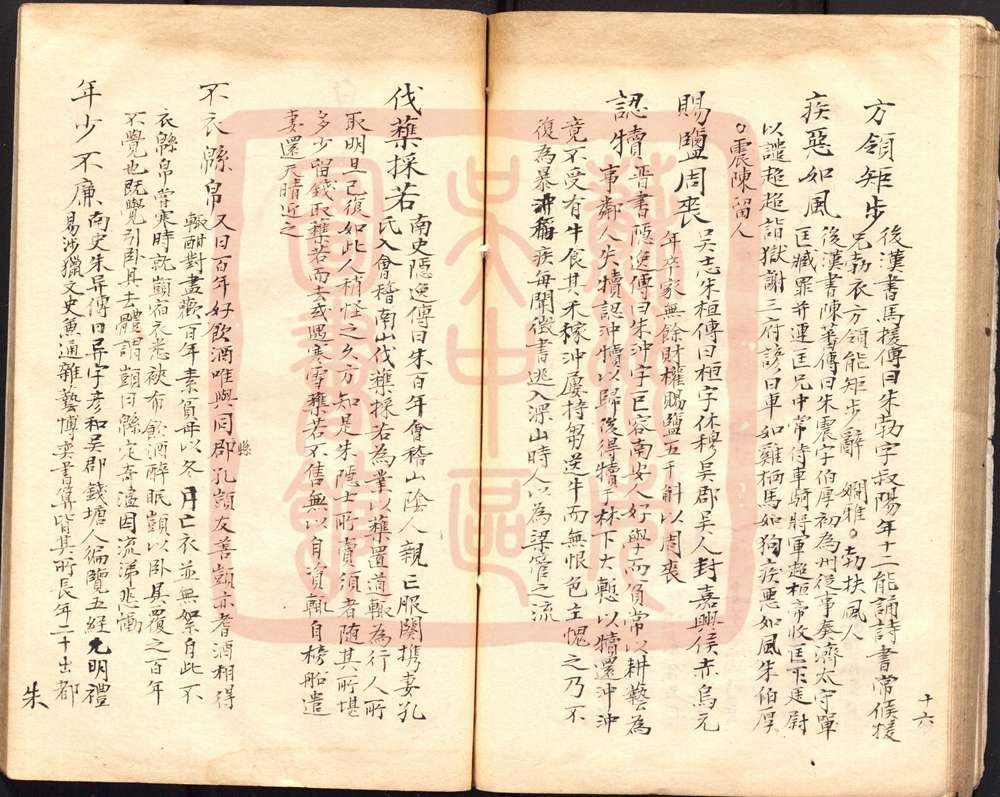 方領矩步後漢書馬援傳曰朱勃字叔陽年十二能誦詩書常候援
兄勃衣方領能矩步辭　嫻雅。勃扶風人
疾惡如風後漢書陳蕃傳曰朱震字伯厚初為州從事奏濟太守單
匡贓罪并連匡兄中常侍車騎將軍超桓帝收匡下廷尉
以譴超超詣獄謝三府諺曰車如雞栖馬如狗疾惡如風朱伯厚
○震陳留人
賜鹽周喪吳志朱桓傳曰桓字休穆吳郡吳人封嘉興侯赤烏元
年卒家無餘財權賜鹽五千斛以周喪
認犢晋書隱逸傳曰朱沖字巨容南安人好學而貧常以耕藝為
事鄰人失犢認沖犢以歸後得犢于林下大慙以犢還沖沖
竟不受有牛食其禾稼沖屢持芻送牛而無恨色主愧之乃不
復為暴沖稱疾每聞徵書逃入深山時人以為梁管之流
伐蘃採若南史隱逸傳曰朱百年會稽山陰人親亡服闋携妻孔
氏入會稽南山伐蘃採若為業以蘃置道輒為行人所
取明旦已復如此人稍怪之久方知是朱隱士所賣須者隨其所堪
多少留錢取蘃若而去或遇寒雪蘃若不售無以自資輒自榜船遣
妻還天晴迎之
不衣緜帛又曰百年好飲酒唯與同郡縣孔顗友善顗亦耆酒相得
輒酣對盡歡百年素貧母以冬月亡衣並無絮自此不
衣緜帛嘗寒時就顗宿衣悉裌布飲酒醉眠顗以卧具覆之百年
不覺也既覺引卧具去體謂顗曰緜定奇溫因流涕悲慟
年少不廉南史朱异傳曰异字彥和吳郡錢塘人徧覽五經尤明禮
易涉獵文史兼通雜藝博奕書算皆其所長年二十出都
朱
十六